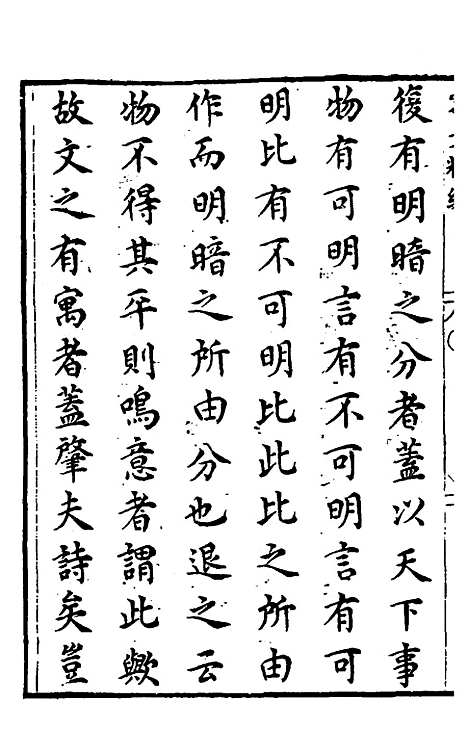 後有明暗之分者蓋以天下事
物有可明言有不可明言有可
明比有不可明比此比之所由
作而明暗之所由分也退之云
物不得其平則鳴意者謂此歟
故文之有寓者蓋肇夫詩矣豈